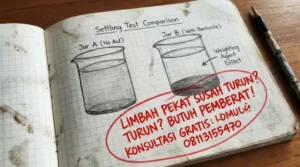 Settling Test Comparison
Jar A (No Aid)
Jar B (With Bentonite)
Weighting
Agent
Effect
LIMBAH PEKAT SUSAH TURUN?
TURUN? BUTUH PEMBERAT!
KONSULTASI GRATIS: LOMULG:
08113155470